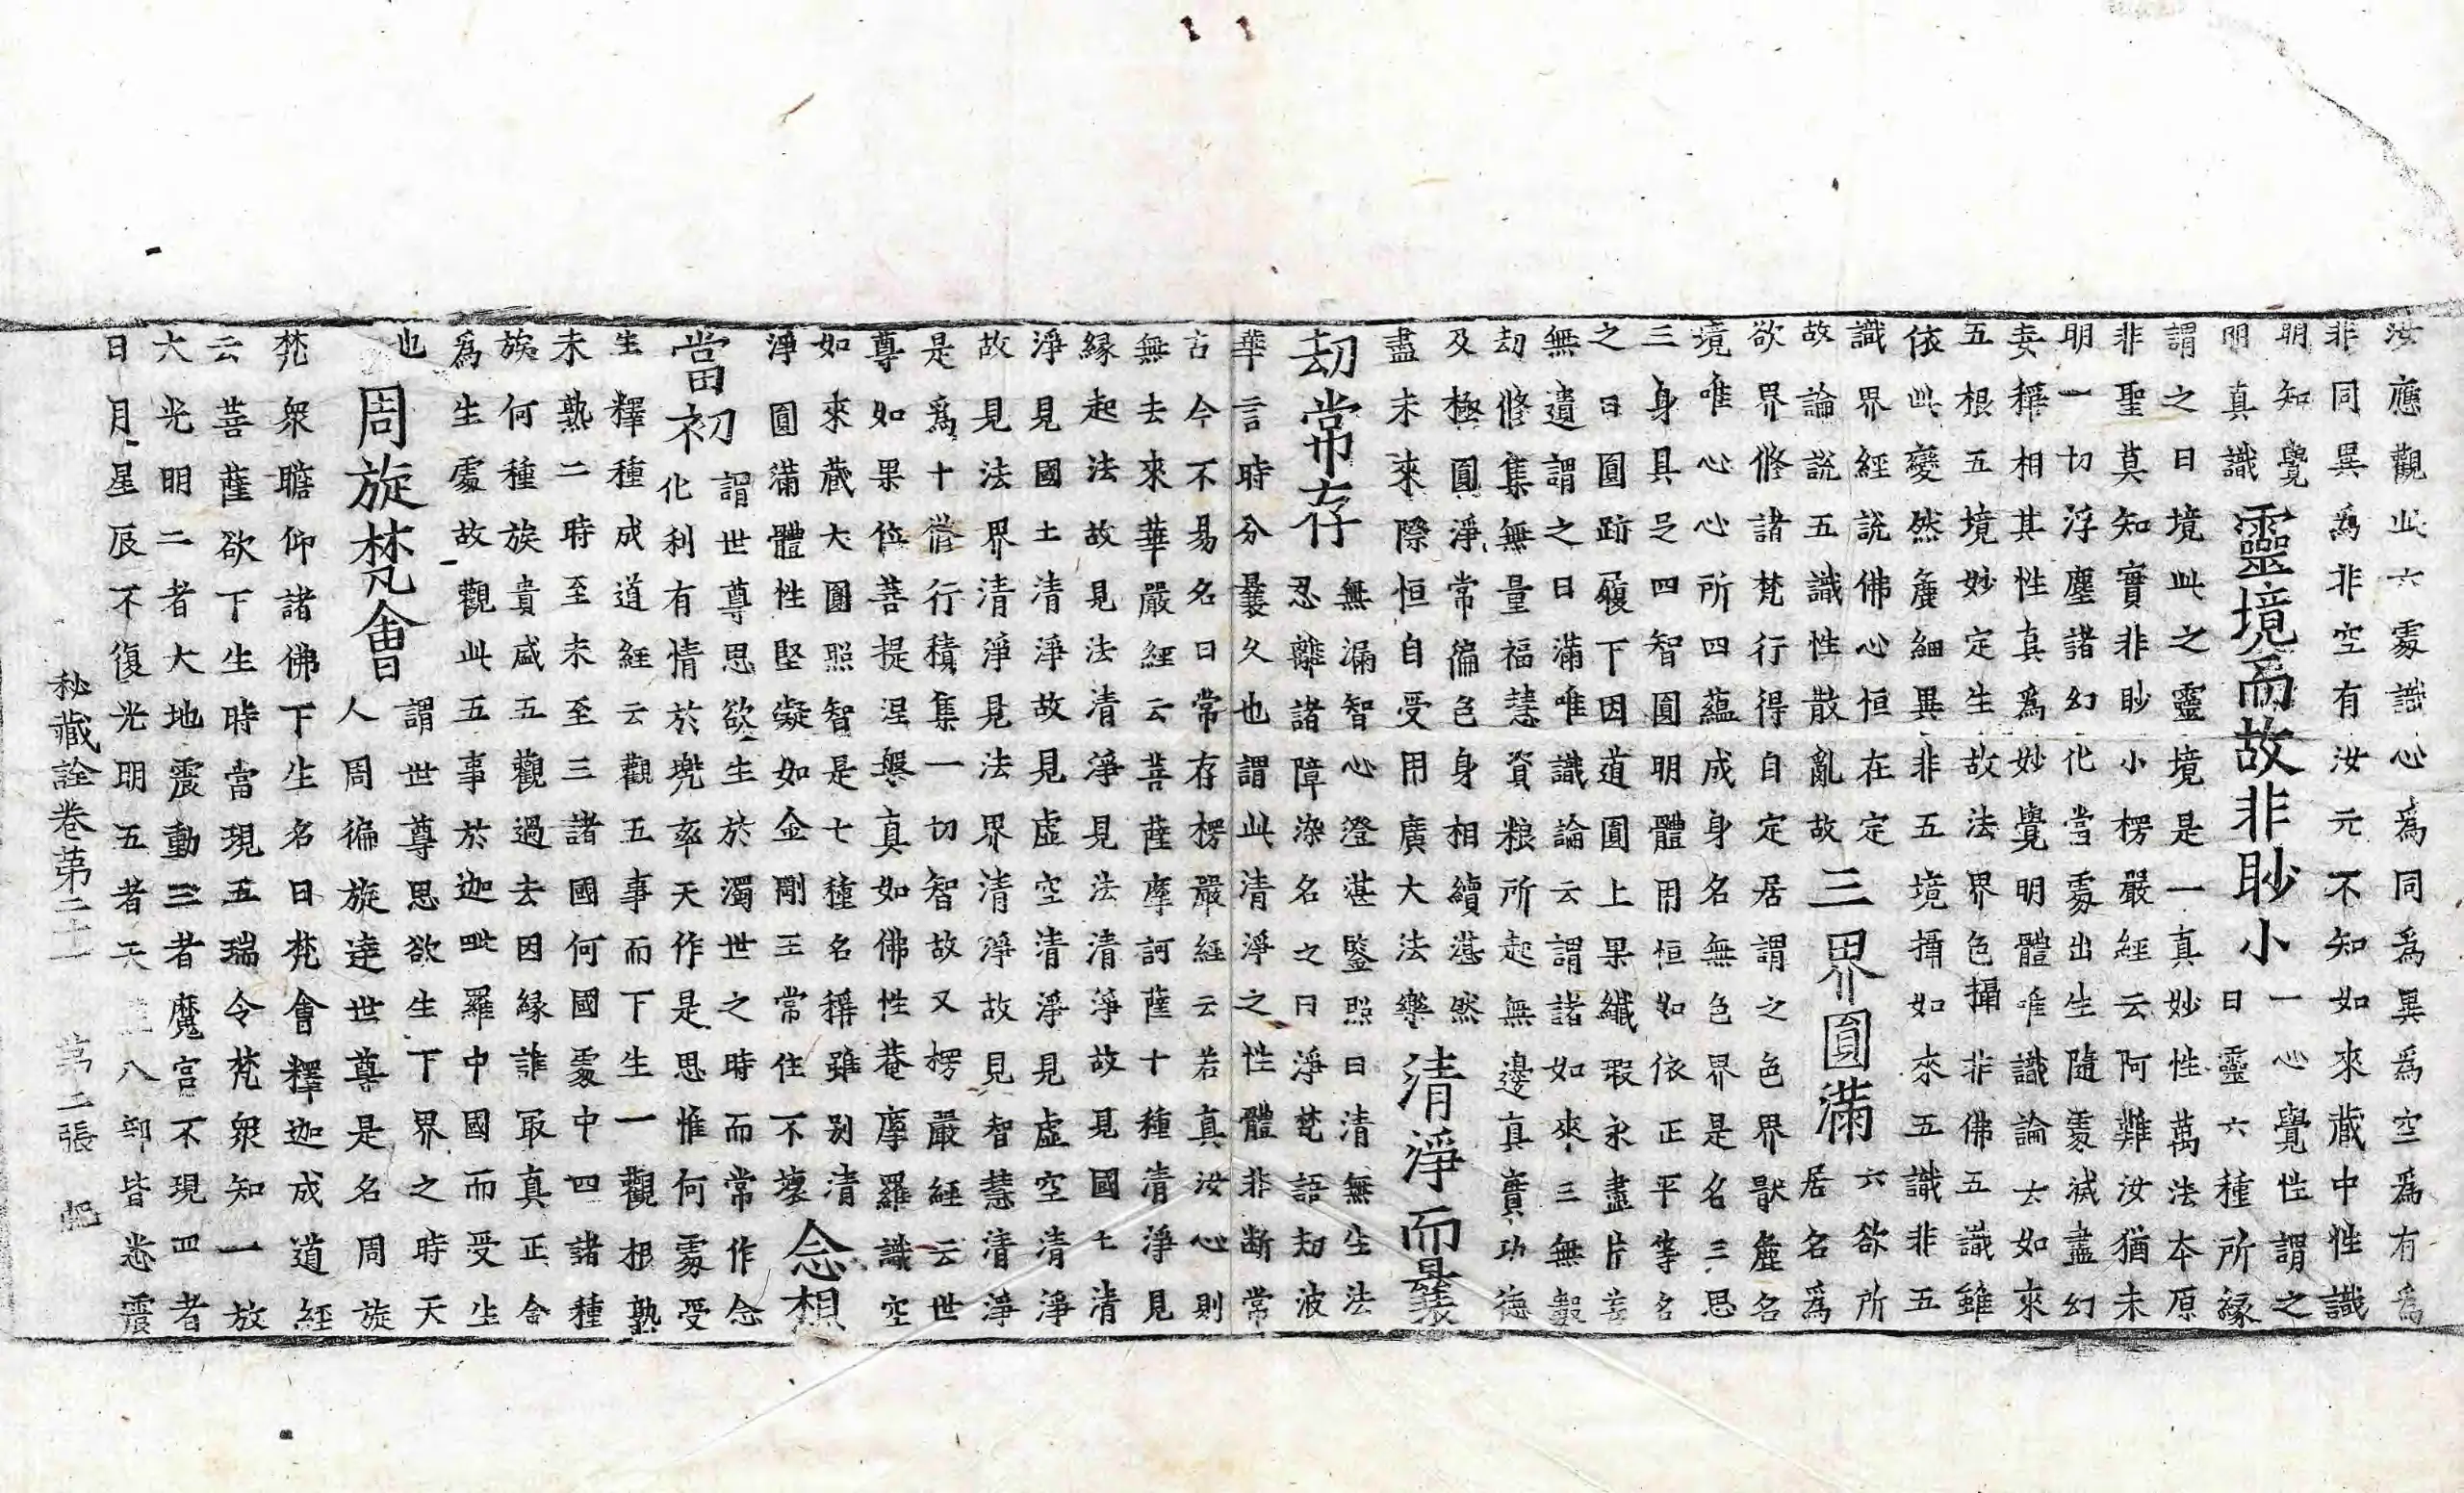 汝應觀此六處識心爲同爲異爲空爲有爲
非同異爲非空有汝元不知如來藏中性識
明知覺
明真識
靈境而故非眇小
一心覺性謂之
曰靈六種所緣
謂之曰境此之靈境是一真妙性萬法本原
非聖莫知實非眇小楞嚴經云阿難汝猶未
明一切浮塵諸幻化當處出生隨處滅盡幻
妄稱相其性真爲妙覺明體唯識論云如來
五根五境妙定生故法界色攝非佛五識雖
依此變然麁細異非五境攝如來五識非五
識界經說佛心恒在定
故論說五識性散亂故
三界圓滿
六欲所
居名爲
欲界修諸梵行得自定居謂之色界猒麁名
境唯心心所四蘊成身名無色界是名三思
三身具足四智圓明體用恒如依正平等名
之曰圓跡履下因道圓上果纖瑕永盡片善
無遺謂之曰滿唯識論云謂諸如來三無數
劫修集無量福慧資粮所起無邊真實功德
及極圓淨常徧色身相續湛然
盡未來際恒自受用廣大法樂
清淨而曩
劫常存
無漏智心澄湛鑒照曰清無生法
忍離諸障染名之曰淨梵語劫波
華言時分曩久也謂此清淨之性體非斷常
古今不易名曰常存楞嚴經云若真汝心則
無去來華嚴經云菩薩摩訶薩十種清淨見
緣起法故見法清淨見法清淨故見國土清
淨見國土清淨故見虛空清淨見虛空清淨
故見法界清淨見法界清淨故見智慧清淨
是爲十從行積集一切智故又楞嚴經云世
尊如果位菩提涅槃真如佛性菴摩羅識空
如來藏大圓照智是七種名稱雖別清
淨圓滿體性堅凝如金剛王常住不壞
念想
當初
謂世尊思欲生於濁世之時而常作念
化利有情於兠率天作是思惟何處受
生釋種成道經云觀五事而下生一觀根熟
未熟二時至未至三諸國何國處中四諸種
族何種族貴盛五觀過去因緣誰最真正合
爲生處故觀此五事於迦毗羅中國而受生
也
周旋梵會
謂世尊思欲生下界之時天
人周徧旋遶世尊是名周旋
梵衆瞻仰諸佛下生名曰梵會釋迦成道經
云菩薩欲下生時當現五瑞令梵衆知一放
大光明二者大地震動三者魔宮不現四者
日月星辰不復光明五者天龍八部皆悉震
秘藏詮卷第二十一　第二張